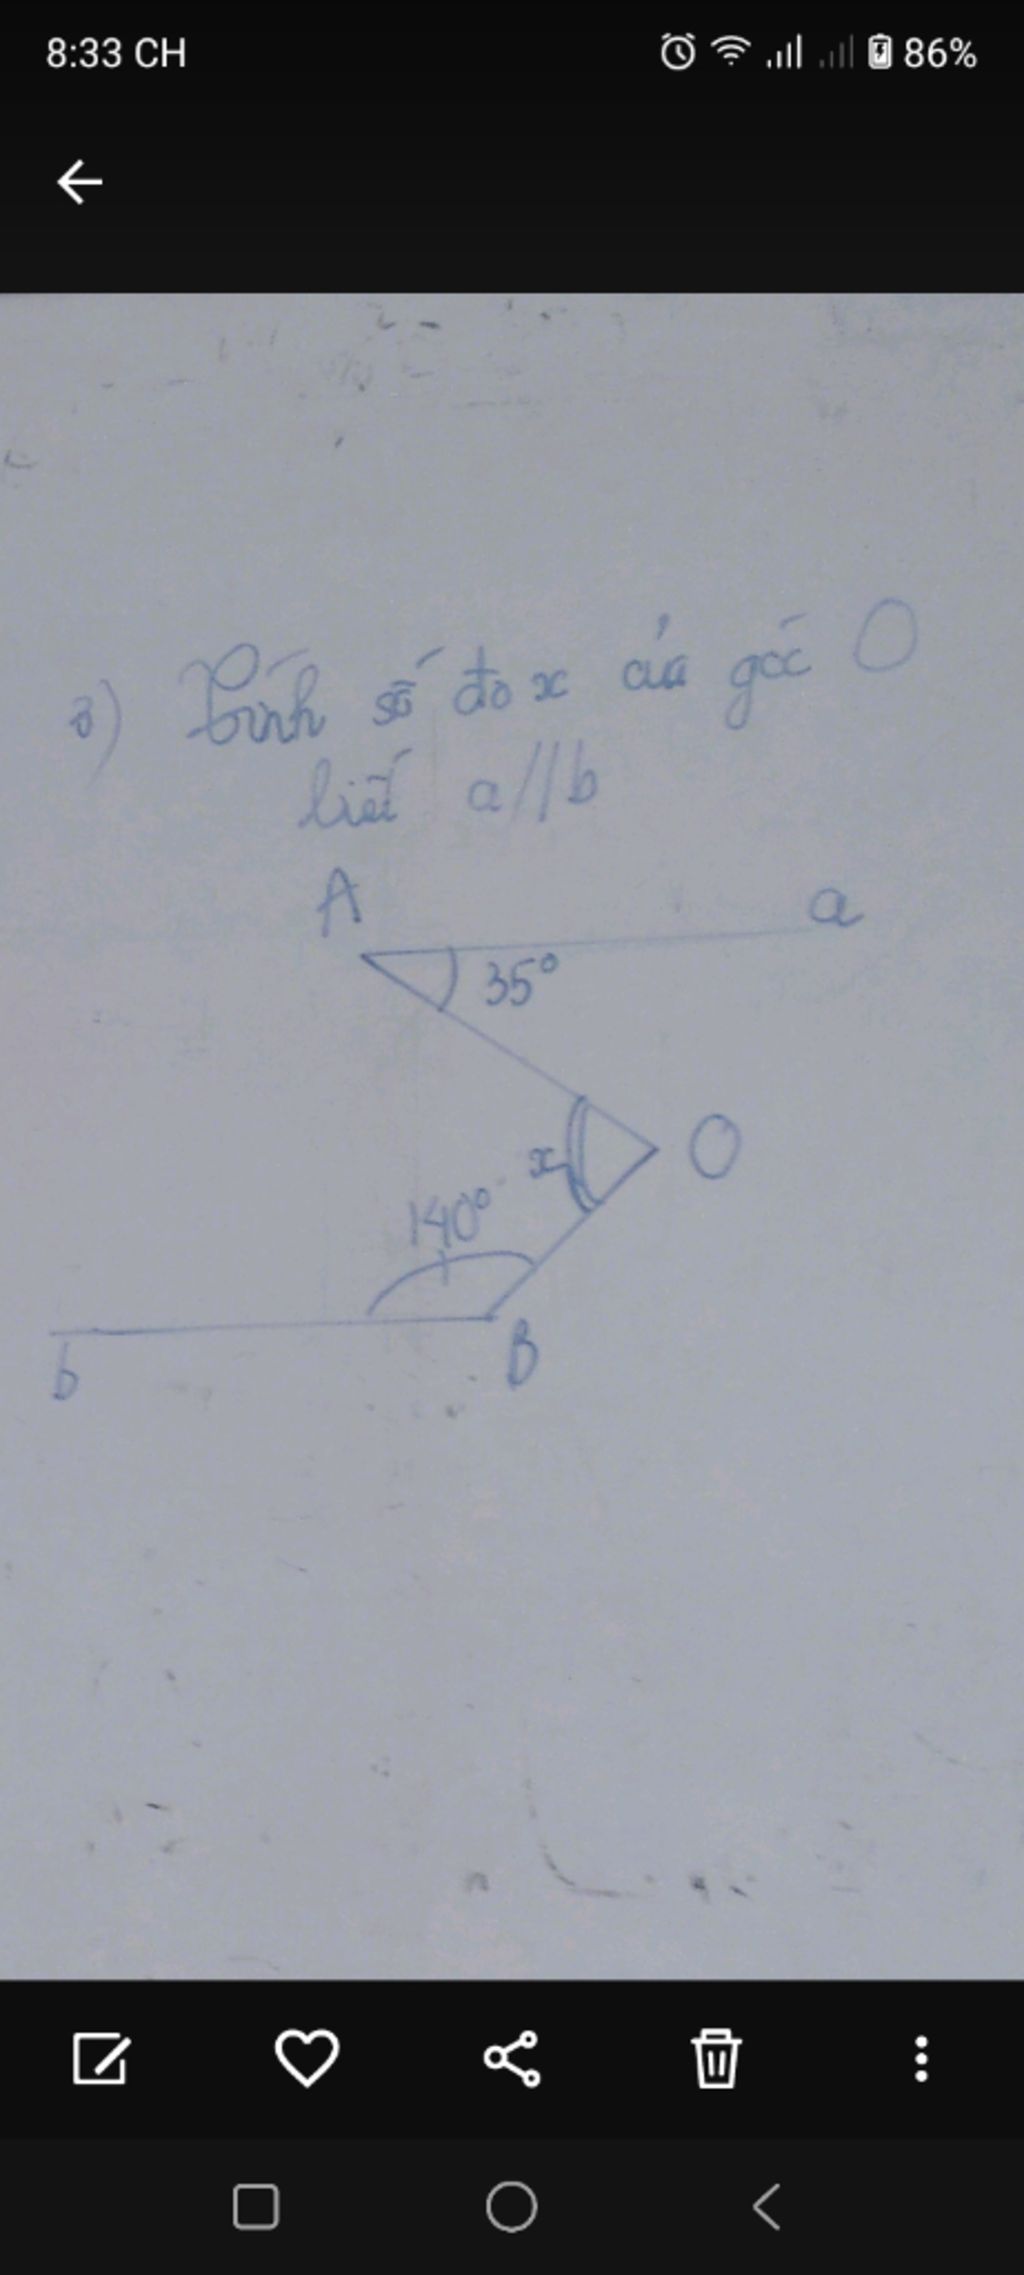 8:33 CH
86%
3) Tính số đo x của góc O
biết a//b
A
a
35°
x
O
140°
B
b